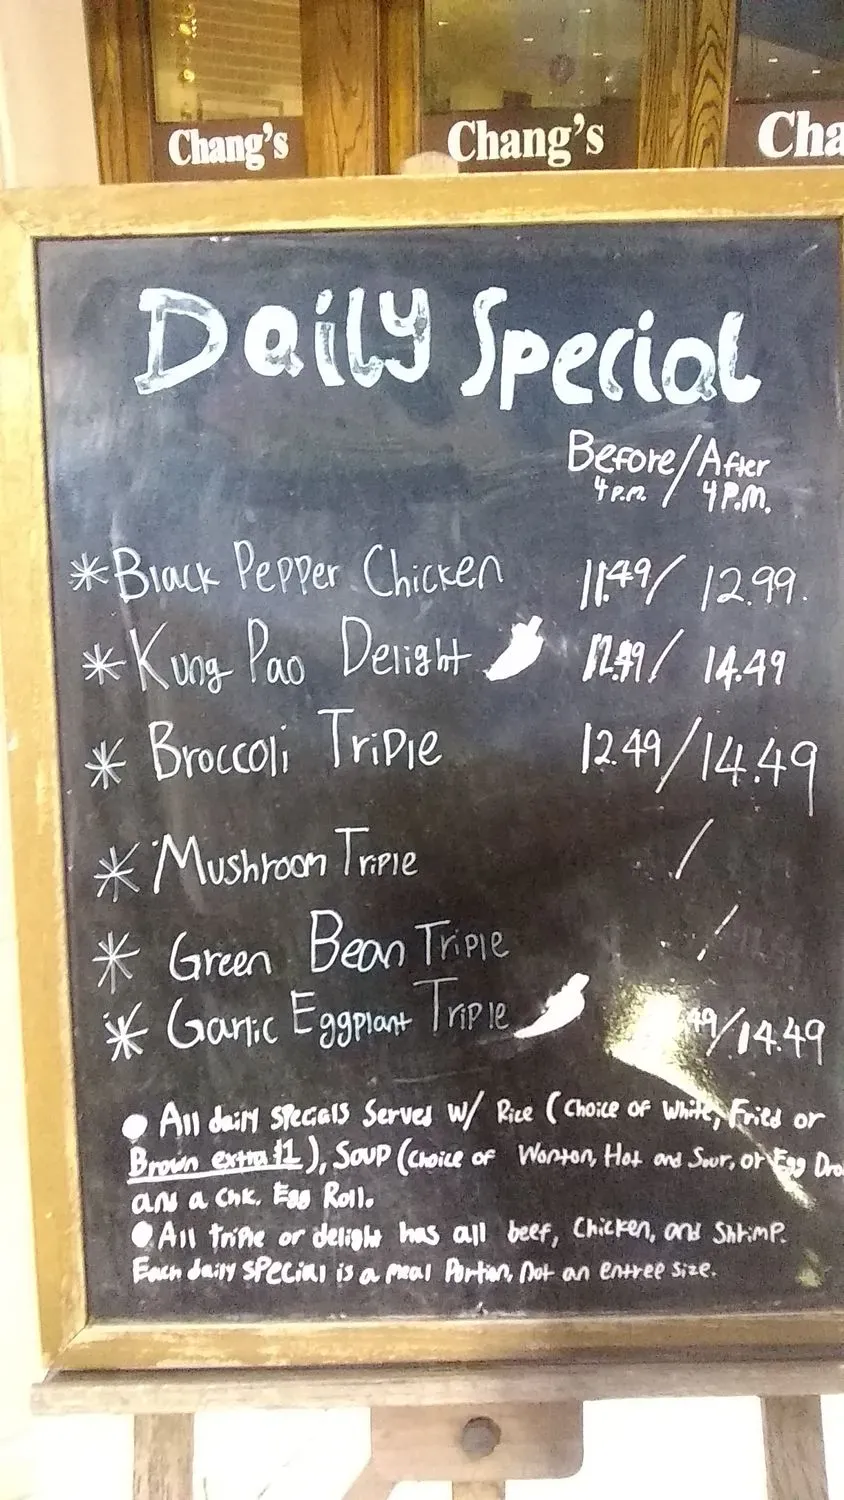 Chang's Chang's Cha
Daily Special
Before/After
4 P.M. / 4 P.M.
*Black Pepper Chicken 11.49/ 12.99.
*Kung Pao Delight 12.49/ 14.49
* Broccoli Triple 12.49/14.49
* Mushroom Triple /
* Green Bean Triple /
* Garlic Eggplant Triple 49/14.49
● All daily specials Served w/ Rice (Choice of White, Fried or
Brown extra $1), Soup (Choice of Wonton, Hot and Sour, or Egg Dro
and a Chk. Egg Roll.
● All triple or delight has all beef, Chicken, and Shrimp.
Each daily special is a meal Portion, Not an entree size.